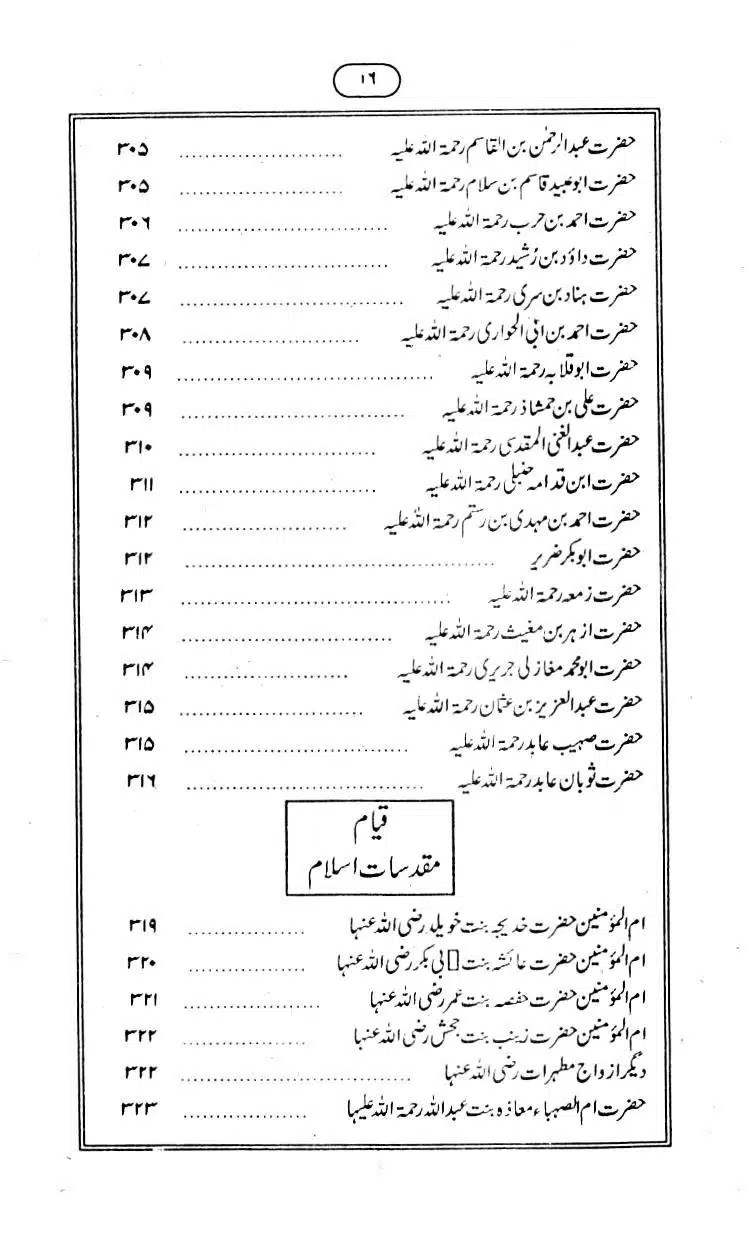 ۱۶
حضرت عبدالرحمٰن بن القاسم رحمۃ اللہ علیہ ..................... ۳۰۵
حضرت ابوعبید قاسم بن سلام رحمۃ اللہ علیہ ..................... ۳۰۵
حضرت احمد بن حرب رحمۃ اللہ علیہ ........................... ۳۰۶
حضرت داؤد بن رُشید رحمۃ اللہ علیہ ........................... ۳۰۷
حضرت ہناد بن سری رحمۃ اللہ علیہ ............................ ۳۰۷
حضرت احمد بن ابی الحواری رحمۃ اللہ علیہ ....................... ۳۰۸
حضرت ابوقلابہ رحمۃ اللہ علیہ ................................. ۳۰۹
حضرت علی بن حمشاذ رحمۃ اللہ علیہ ............................ ۳۰۹
حضرت عبدالغنی المقدسی رحمۃ اللہ علیہ ......................... ۳۱۰
حضرت ابن قدامہ حنبلی رحمۃ اللہ علیہ ......................... ۳۱۱
حضرت احمد بن مہدی بن رستم رحمۃ اللہ علیہ ..................... ۳۱۲
حضرت ابوبکر ضریر ....................................... ۳۱۲
حضرت زمعہ رحمۃ اللہ علیہ .................................. ۳۱۳
حضرت ازہر بن مغیث رحمۃ اللہ علیہ ........................... ۳۱۴
حضرت ابومحمد مغازلی جریری رحمۃ اللہ علیہ ..................... ۳۱۴
حضرت عبدالعزیز بن عثمان رحمۃ اللہ علیہ ....................... ۳۱۵
حضرت صہیب عابد رحمۃ اللہ علیہ ............................. ۳۱۵
حضرت ثوبان عابد رحمۃ اللہ علیہ .............................. ۳۱۶
قیام
مقدسات اسلام
ام المؤمنین حضرت خدیجہ بنت خویلد رضی اللہ عنہا ............... ۳۱۹
ام المؤمنین حضرت عائشہ بنت ▯بی بکر رضی اللہ عنہا ............... ۳۲۰
ام المؤمنین حضرت حفصہ بنت عمر رضی اللہ عنہا .................. ۳۲۱
ام المؤمنین حضرت زینب بنت جحش رضی اللہ عنہا ................ ۳۲۲
دیگر ازواج مطہرات رضی اللہ عنہا ............................. ۳۲۲
حضرت ام الصہباء معاذہ بنت عبداللہ رحمۃ اللہ علیہا ................ ۳۲۳